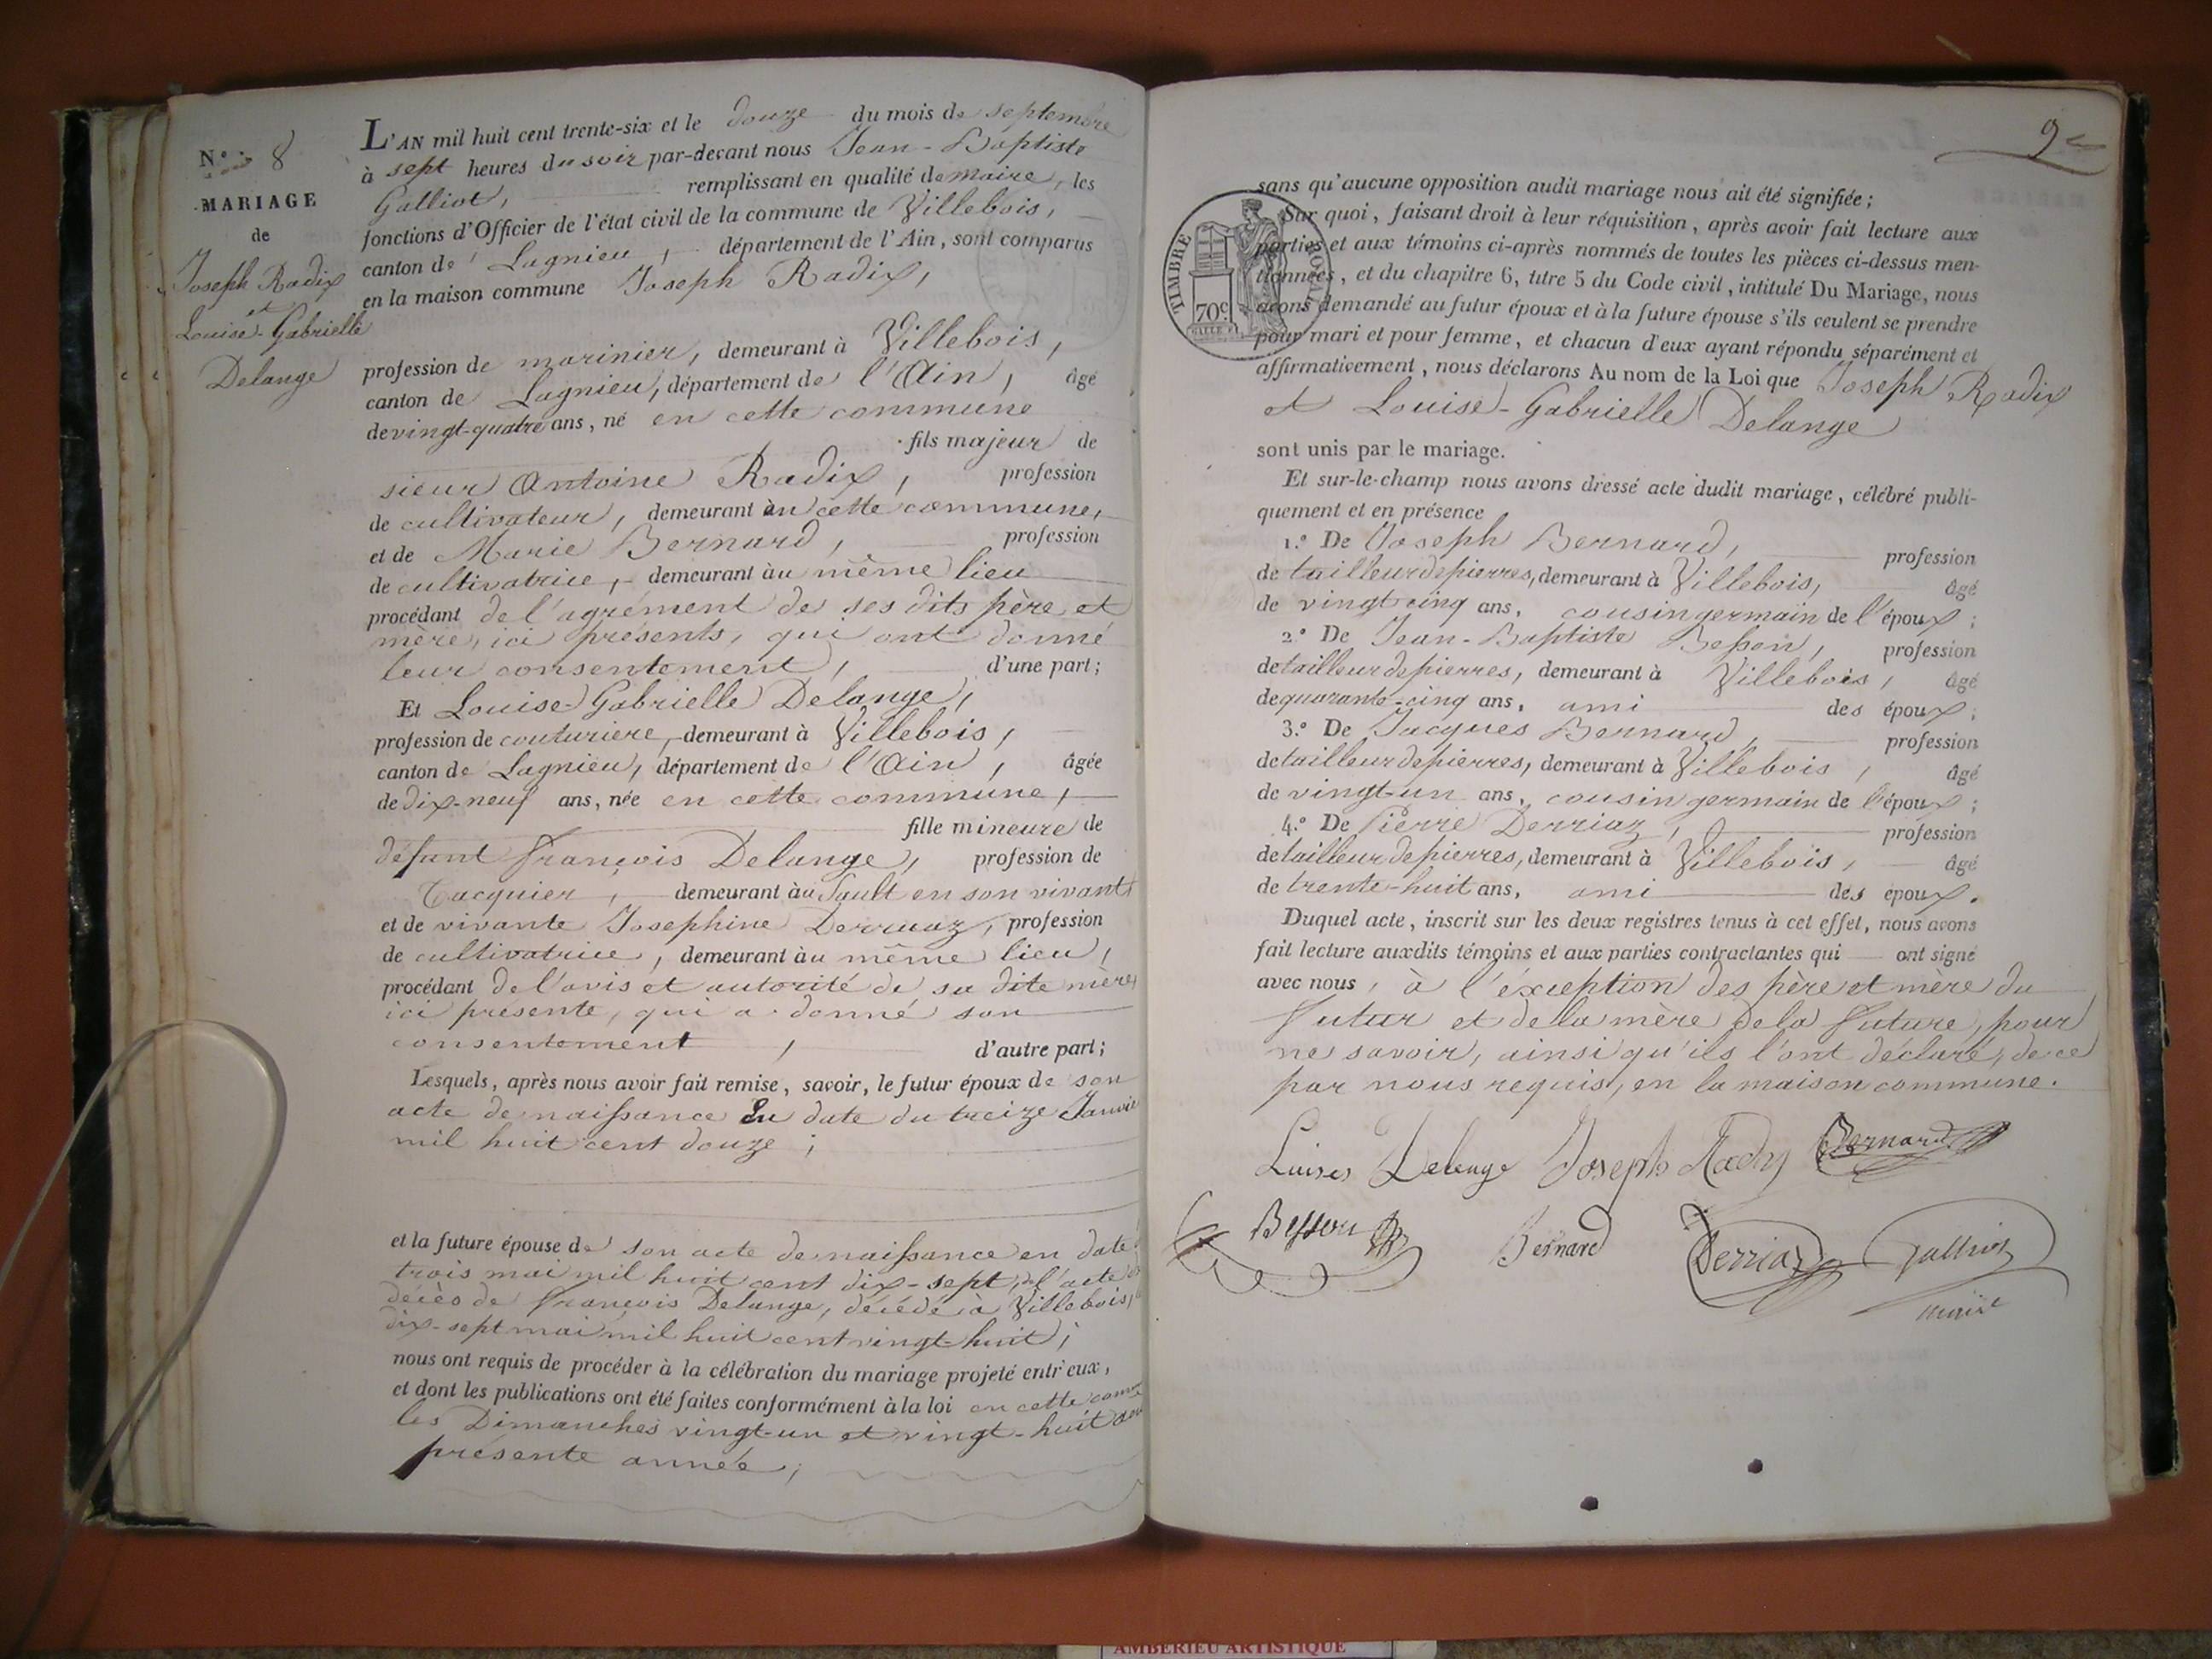 N.º 8
MARIAGE
de
Joseph Radix
et
Louise-Gabrielle
Delange
L'AN mil huit cent trente-six et le douze du mois de septembre
à sept heures du soir par-devant nous Jean-Baptiste
Galliot, remplissant en qualité de maire, les
fonctions d'Officier de l'état civil de la commune de Villebois,
canton de Lagnieu, département de l'Ain, sont comparus
en la maison commune Joseph Radix,
profession de marinier, demeurant à Villebois,
canton de Lagnieu, département de l'Ain, âgé
de vingt-quatre ans, né en cette commune
fils majeur de
sieur Antoine Radix, profession
de cultivateur, demeurant en cette commune,
et de Marie Bernard, profession
de cultivatrice, demeurant àu même lieu
procédant de l'agrément de ses dits père et
mère, ici présents, qui ont donné
leur consentement, d'une part;
Et Louise Gabrielle Delange,
profession de couturiere, demeurant à Villebois,
canton de Lagnieu, département de l'Ain, âgée
de dix-neuf ans, née en cette commune,
fille mineure de
défunt François Delange, profession de
demeurant àu Sault en son vivant
et de vivante Josephine Derriaz, profession
de cultivatrice, demeurant àu même lieu,
procédant de l'avis et autorité de sa dite mère
ici présente, qui a donné son
consentement, d'autre part;
Lesquels, après nous avoir fait remise, savoir, le futur époux de son
acte de naissance En date du treize Janvie
mil huit cent douze;
et la future épouse de son acte de naissance en date
trois mai mil huit cent dix-sept, l'acte
décès de François Delange, décédé à Villebois,
dix-sept mai mil huit cent vingt-huit;
nous ont requis de procéder à la célébration du mariage projeté entr'eux,
et dont les publications ont été faites conformément à la loi en cette comm
les Dimanches vingt-un et vingt-huit
présente année;
9
TIMBRE ROYAL
70c
sans qu'aucune opposition audit mariage nous ait été signifiée;
Sur quoi, faisant droit à leur réquisition, après avoir fait lecture aux
parties et aux témoins ci-après nommés de toutes les pièces ci-dessus men-
tionnées, et du chapitre 6, titre 5 du Code civil, intitulé Du Mariage, nous
avons demandé au futur époux et à la future épouse s'ils veulent se prendre
pour mari et pour femme, et chacun d'eux ayant répondu séparément et
affirmativement, nous déclarons Au nom de la Loi que Joseph Radix
et Louise-Gabrielle Delange
sont unis par le mariage.
Et sur-le-champ nous avons dressé acte dudit mariage, célébré publi-
quement et en présence
1.º De Joseph Bernard, profession
de tailleur de pierres, demeurant à Villebois, âgé
de vingt-cinq ans, cousin germain de l'époux;
2.º De Jean-Baptiste Besson, profession
de tailleur de pierres, demeurant à Villebois, âgé
de quarante-cinq ans, ami des époux;
3.º De Jacques Bernard, profession
de tailleur de pierres, demeurant à Villebois, âgé
de vingt-un ans, cousin germain de l'époux;
4.º De Pierre Derriaz, profession
de tailleur de pierres, demeurant à Villebois, âgé
de trente-huit ans, ami des époux.
Duquel acte, inscrit sur les deux registres tenus à cet effet, nous avons
fait lecture auxdits témoins et aux parties contractantes qui ont signé
avec nous, à l'éxception des père et mère du
futur et de la mère de la future, pour
ne savoir, ainsi qu'ils l'ont déclaré, de ce
par nous requis, en la maison commune.
Delange Joseph Radix Bernard
Besson Bernard Derriaz Galliot
maire
AMBERIEU ARTISTIQUE